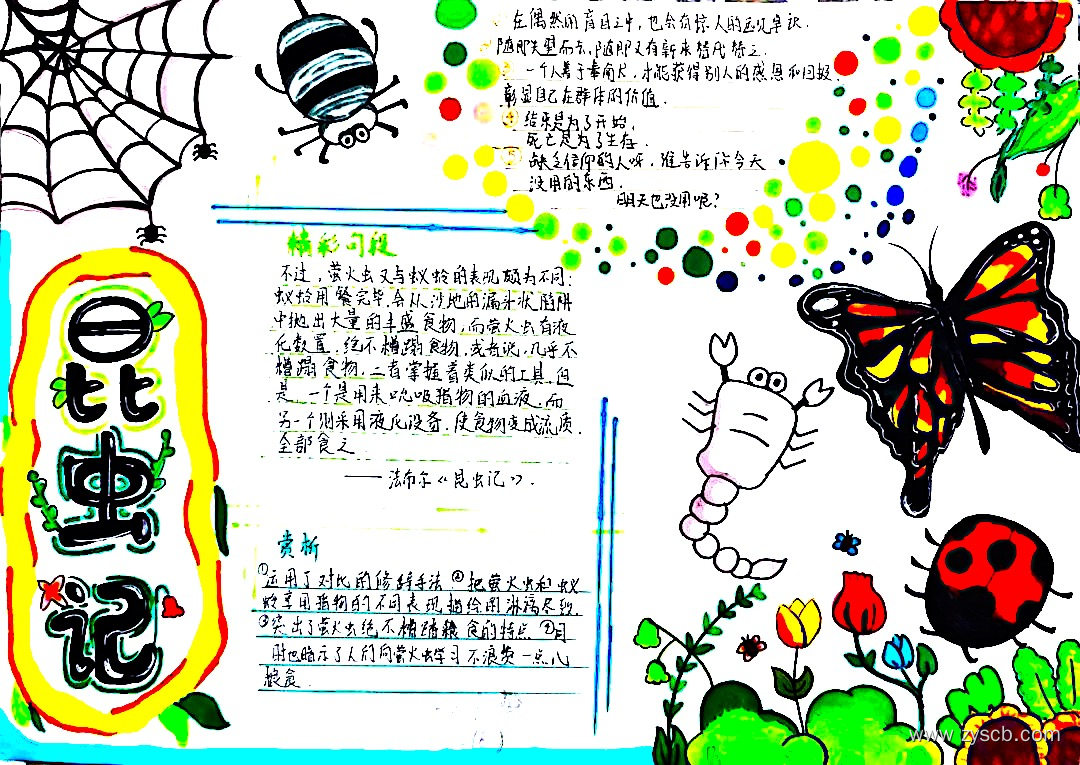 在偶然的盲目之中,也会有惊人的远见卓识.
随即失望而去,随即又有新来替代替之.
一个人善于奉献,才能获得别人的感恩和回报.
彰显自己在群体的价值.
④ 结束是为了开始,
死亡是为了生存.
⑤ 缺乏信仰的人呀,谁告诉你今天
没用的东西.
明天也没用呢?
精彩句段
不过,萤火虫又与蚁蛉的表现颇为不同:
蚁蛉用餐完毕,会从沙地的漏斗状陷阱
中抛出大量的丰盛食物,而萤火虫有液
化装置,绝不糟蹋食物,或者说,几乎不
糟蹋食物.二者掌握着类似的工具,但
是一个是用来吮吸猎物的血液,而
另一个则采用液化设备,使食物变成流质.
全部食之
——法布尔《昆虫记》.
赏析
①运用了对比的修辞手法②把萤火虫和蚁
蛉享用猎物的不同表现描绘的淋漓尽致.
③突出了萤火虫绝不糟蹋粮食的特点 ②同
时也暗示了人们向萤火虫学习不浪费一点儿
粮食.
昆虫记
www.zyscb.com